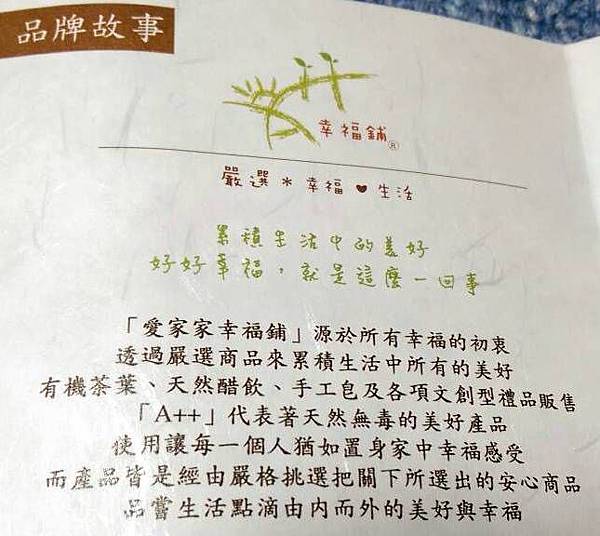 品牌故事
幸福鋪®
嚴選＊幸福♥生活
累積生活中的美好
好好幸福，就是這麼一回事
「愛家家幸福鋪」源於所有幸福的初衷
透過嚴選商品來累積生活中所有的美好
有機茶葉、天然醋飲、手工皂及各項文創型禮品販售
「A++」代表著天然無毒的美好產品
使用讓每一個人猶如置身家中幸福感受
而產品皆是經由嚴格挑選把關下所選出的安心商品
品嘗生活點滴由內而外的美好與幸福